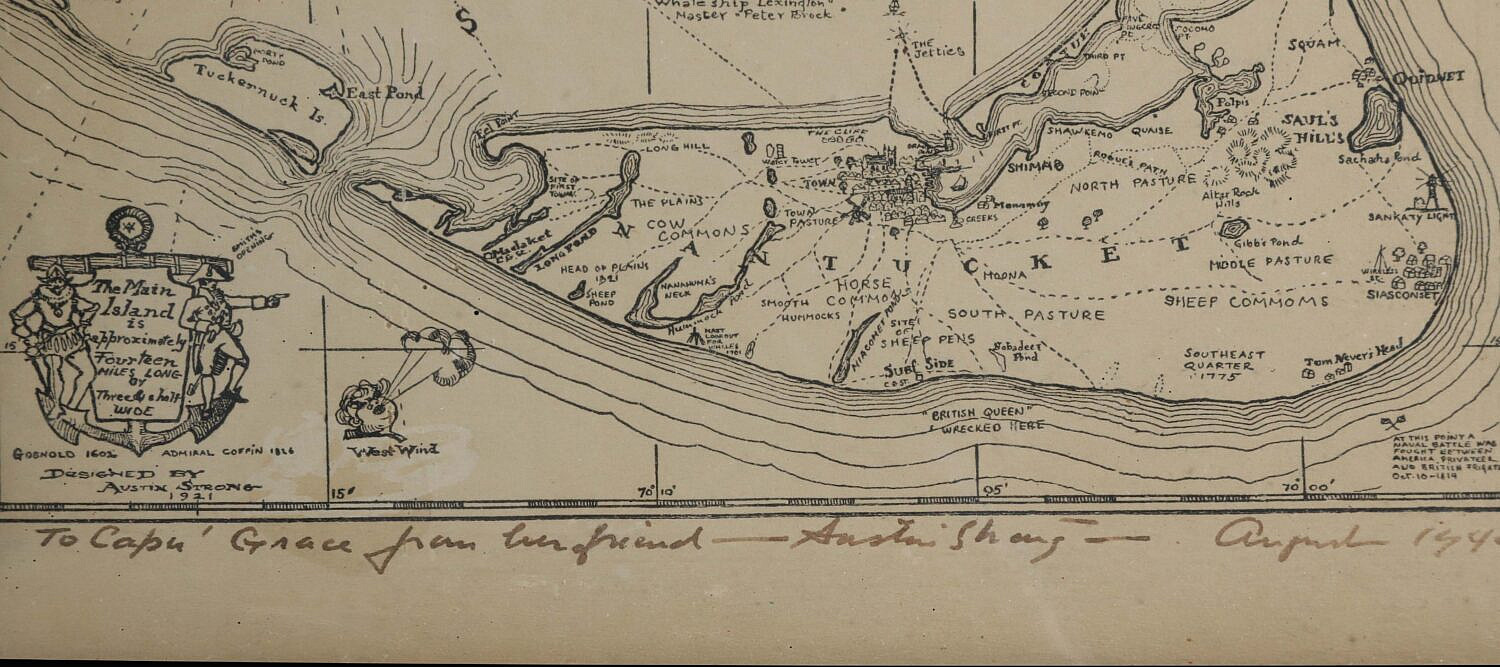 S
Whale ship Lexington"
Master "Peter Brock"
THE
Jetties
COATUE
THIRD PT
SECOND POINT
FIRST PT.
POCOMO
PT.
SQUAM
QUIDNET
Polpis
SAUL'S
HILLS
Sachacha Pond
NORTH
POND
Tuckernuck Is.
East Pond
Eel Point
LONG HILL
THE CLIFF
Water Tower
TOWN
SHAWKEMO
QUAISE
SHIMMO
ROGUE'S PATH
NORTH PASTURE
Altar Rock
Hills
SANKATY LIGHT
SITE OF
FIRST
TOWN
THE PLAINS
COW
COMMONS
TOWN
PASTURE
Monomoy
CREEKS
Gibbs Pond
MIDDLE PASTURE
Madaket
LONG POND
NANTUCKET
MOONA
WIRELESS
SIASCONSET
SMITHS
OPENING
HEAD OF PLAINS
1921
SHEEP
POND
NANAHUMA'S
NECK
Hummock Pond
SMOOTH
HUMMOCKS
HORSE
COMMONS
SHEEP COMMOMS
SOUTH PASTURE
MAST
LOOKOUT
FOR
WHALES
MIACOMET POND
SITE
OF
SHEEP PENS
SURF SIDE
Pond
SOUTHEAST
QUARTER
1775
Tom Nevers Head
The Main
Island
is
approximately
Fourteen
MILES LONG
BY
Three & a half
WIDE
15
"BRITISH QUEEN"
WRECKED HERE
AT THIS POINT A
NAVAL BATTLE WAS
FOUGHT BETWEEN
AMERICA PRIVATEER
AND BRITISH FRIGATE
Oct-10-1814
GOSNOLD 1602
ADMIRAL COFFIN 1826
West Wind
DESIGNED BY
AUSTIN STRONG
1921
15'
70° 10'
05'
70° 00'
To Cap'n Grace from her friend — Austin Strong — August